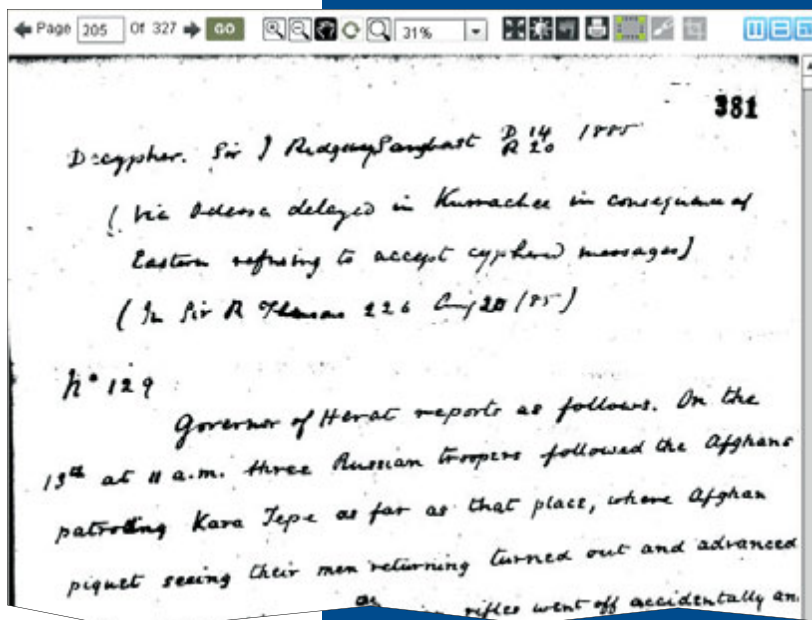 Page 205 Of 327 GO 31%
381
Decypher. Sir J Ridgway D 14 1885
R 20
(Via Odessa delayed in Kurrachee in consequence of
Eastern refusing to accept cyphered messages)
(In Sir R 226 Aug 20/85)
No 129
Governor of Herat reports as follows. On the
13th at 11 a.m. three Russian troopers followed the Afghans
patroling Kara Tepe as far as that place, where Afghan
piquet seeing their men returning turned out and advanced
rifles went off accidentally an